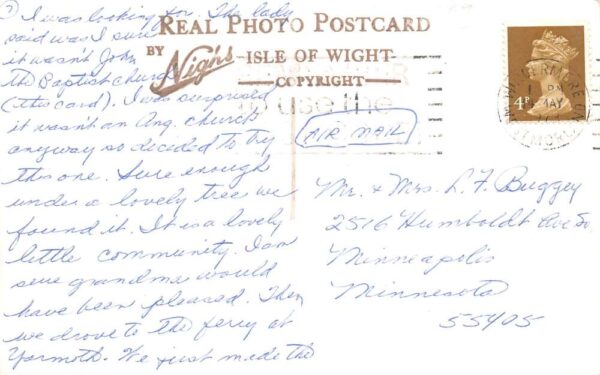 REAL PHOTO POSTCARD
BY Nigh's ISLE OF WIGHT
COPYRIGHT
use the
AIR MAIL
4P
PM
MAY
I was looking for. The lady
said was I sure
it wasn't John
the Baptist church
(this card). I was surprised
it wasn't an Ang. church
anyway so decided to try
this one. Sure enough
under a lovely tree we
found it. It is a lovely
little community. I am
sure grandma would
have been pleased. Then
we drove to the ferry at
Yarmoth. We just made the
Mr. & Mrs. L. F. Buggey
2516 Humboldt Ave So.
Minneapolis
Minnesota
55405